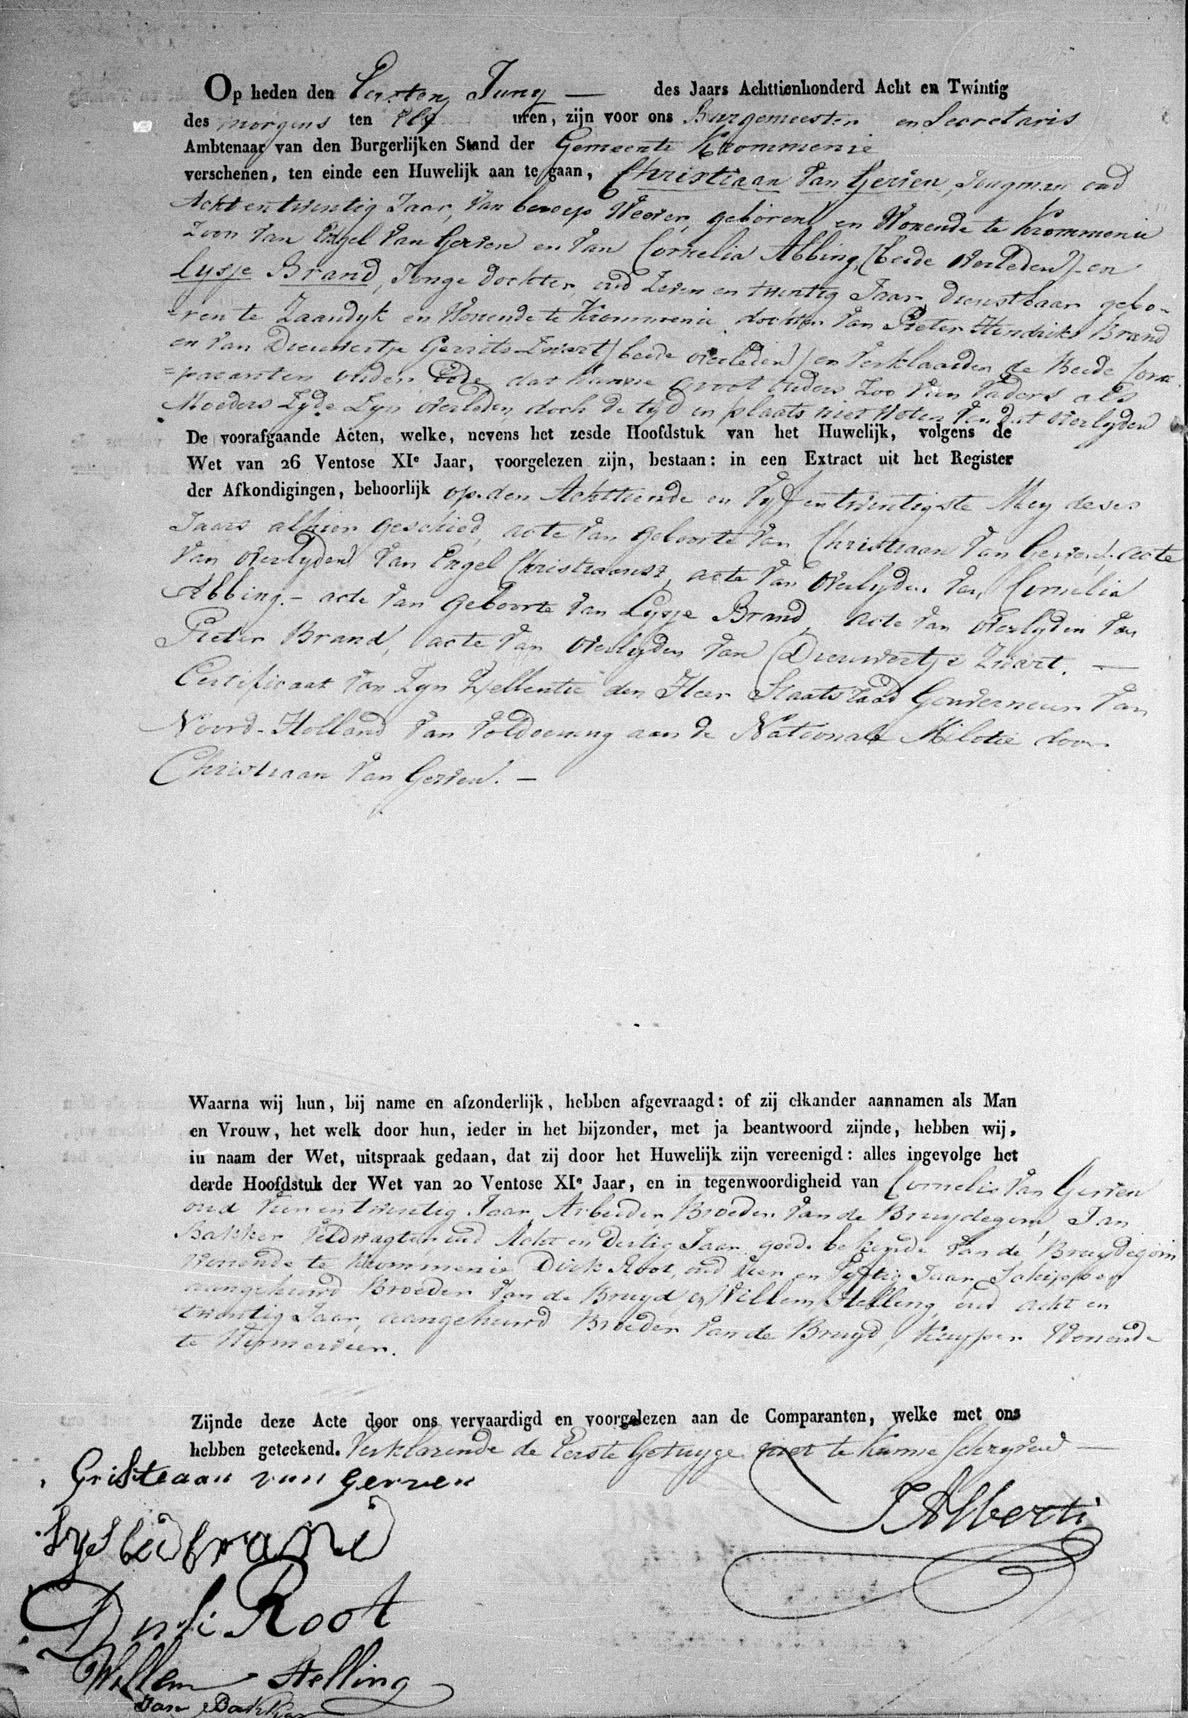 Op heden den Eersten Juny — des Jaars Achttienhonderd Acht en Twintig
des morgens ten Elf uren, zijn voor ons Burgemeester en Secretaris
Ambtenaar van den Burgerlijken Stand der Gemeente Krommenie
verschenen, ten einde een Huwelijk aan te gaan, Christiaan van Gerven, Jongman oud
Acht en twintig Jaar, van beroep Wever, geboren en Wonende te Krommenie
Zoon van Engel van Gerven en van Cornelia Abbing, (beide overleden) en
Lysje Brand, Jonge dochter, oud Zeven en twintig Jaar, dienstbaar gebo-
=ren te Zaandyk en Wonende te Krommenie, dochter van Pieter Hendriks Brand
en van Dieuwertje Gerrits Zwart, (beide overleden) en verklaarden de Beide Com
=paranten onder Eede, dat hunne Groot ouders Zoo van Vaders als
Moeders Zyde Zyn overleden doch de tyd en plaats niet Weten van dat overlyden
De voorafgaande Acten, welke, nevens het zesde Hoofdstuk van het Huwelijk, volgens de
Wet van 26 Ventose XIe Jaar, voorgelezen zijn, bestaan: in een Extract uit het Register
der Afkondigingen, behoorlijk op den Achttiende en Vyf en twintigste Mey deses
Jaars alhier geschied, acte van geboorte van Christiaan van Gerven, acte
van overlyden van Engel Christiaansz, acte van overlyden van Cornelia
Abbing. – acte van geboorte van Lysje Brand, acte van overlyden van
Pieter Brand, acte van overlyden van Dieuwertje Zwart. —
Certificaat van Zyn Exellentie den Heer Staatsraad Gouverneur van
Noord-Holland van voldoening aan de Nationale Militie door
Christiaan van Gerven. –
Waarna wij hun, bij name en afzonderlijk, hebben afgevraagd: of zij elkander aannamen als Man
en Vrouw, het welk door hun, ieder in het bijzonder, met ja beantwoord zijnde, hebben wij,
in naam der Wet, uitspraak gedaan, dat zij door het Huwelijk zijn vereenigd: alles ingevolge het
derde Hoofdstuk der Wet van 20 Ventose XIe Jaar, en in tegenwoordigheid van Cornelis van Gerven
oud en twintig Jaar Arbeider, Broeder van de Bruydegom, Jan
Bakker Veldwagter oud Acht en Dertig Jaar, goede bekende van de Bruydegom
Wonende te Krommenie, Dirk Root, oud en Vyftig Jaar Schipper
aangehuwd Broeder van de Bruyd en Willem Stelling, oud acht en
twintig Jaar, aangehuwd Broeder van de Bruyd, Kuyper Wonende
te Wormerveer.
Zijnde deze Acte door ons vervaardigd en voorgelezen aan de Comparanten, welke met ons
hebben geteekend. Verklarende de Eerste Getuyge niet te Kunne Schryven —
Gristeaan van gerven
J Alberti
Lysbeid brand
Dirk Root
Willem Stelling
Jan Bakker